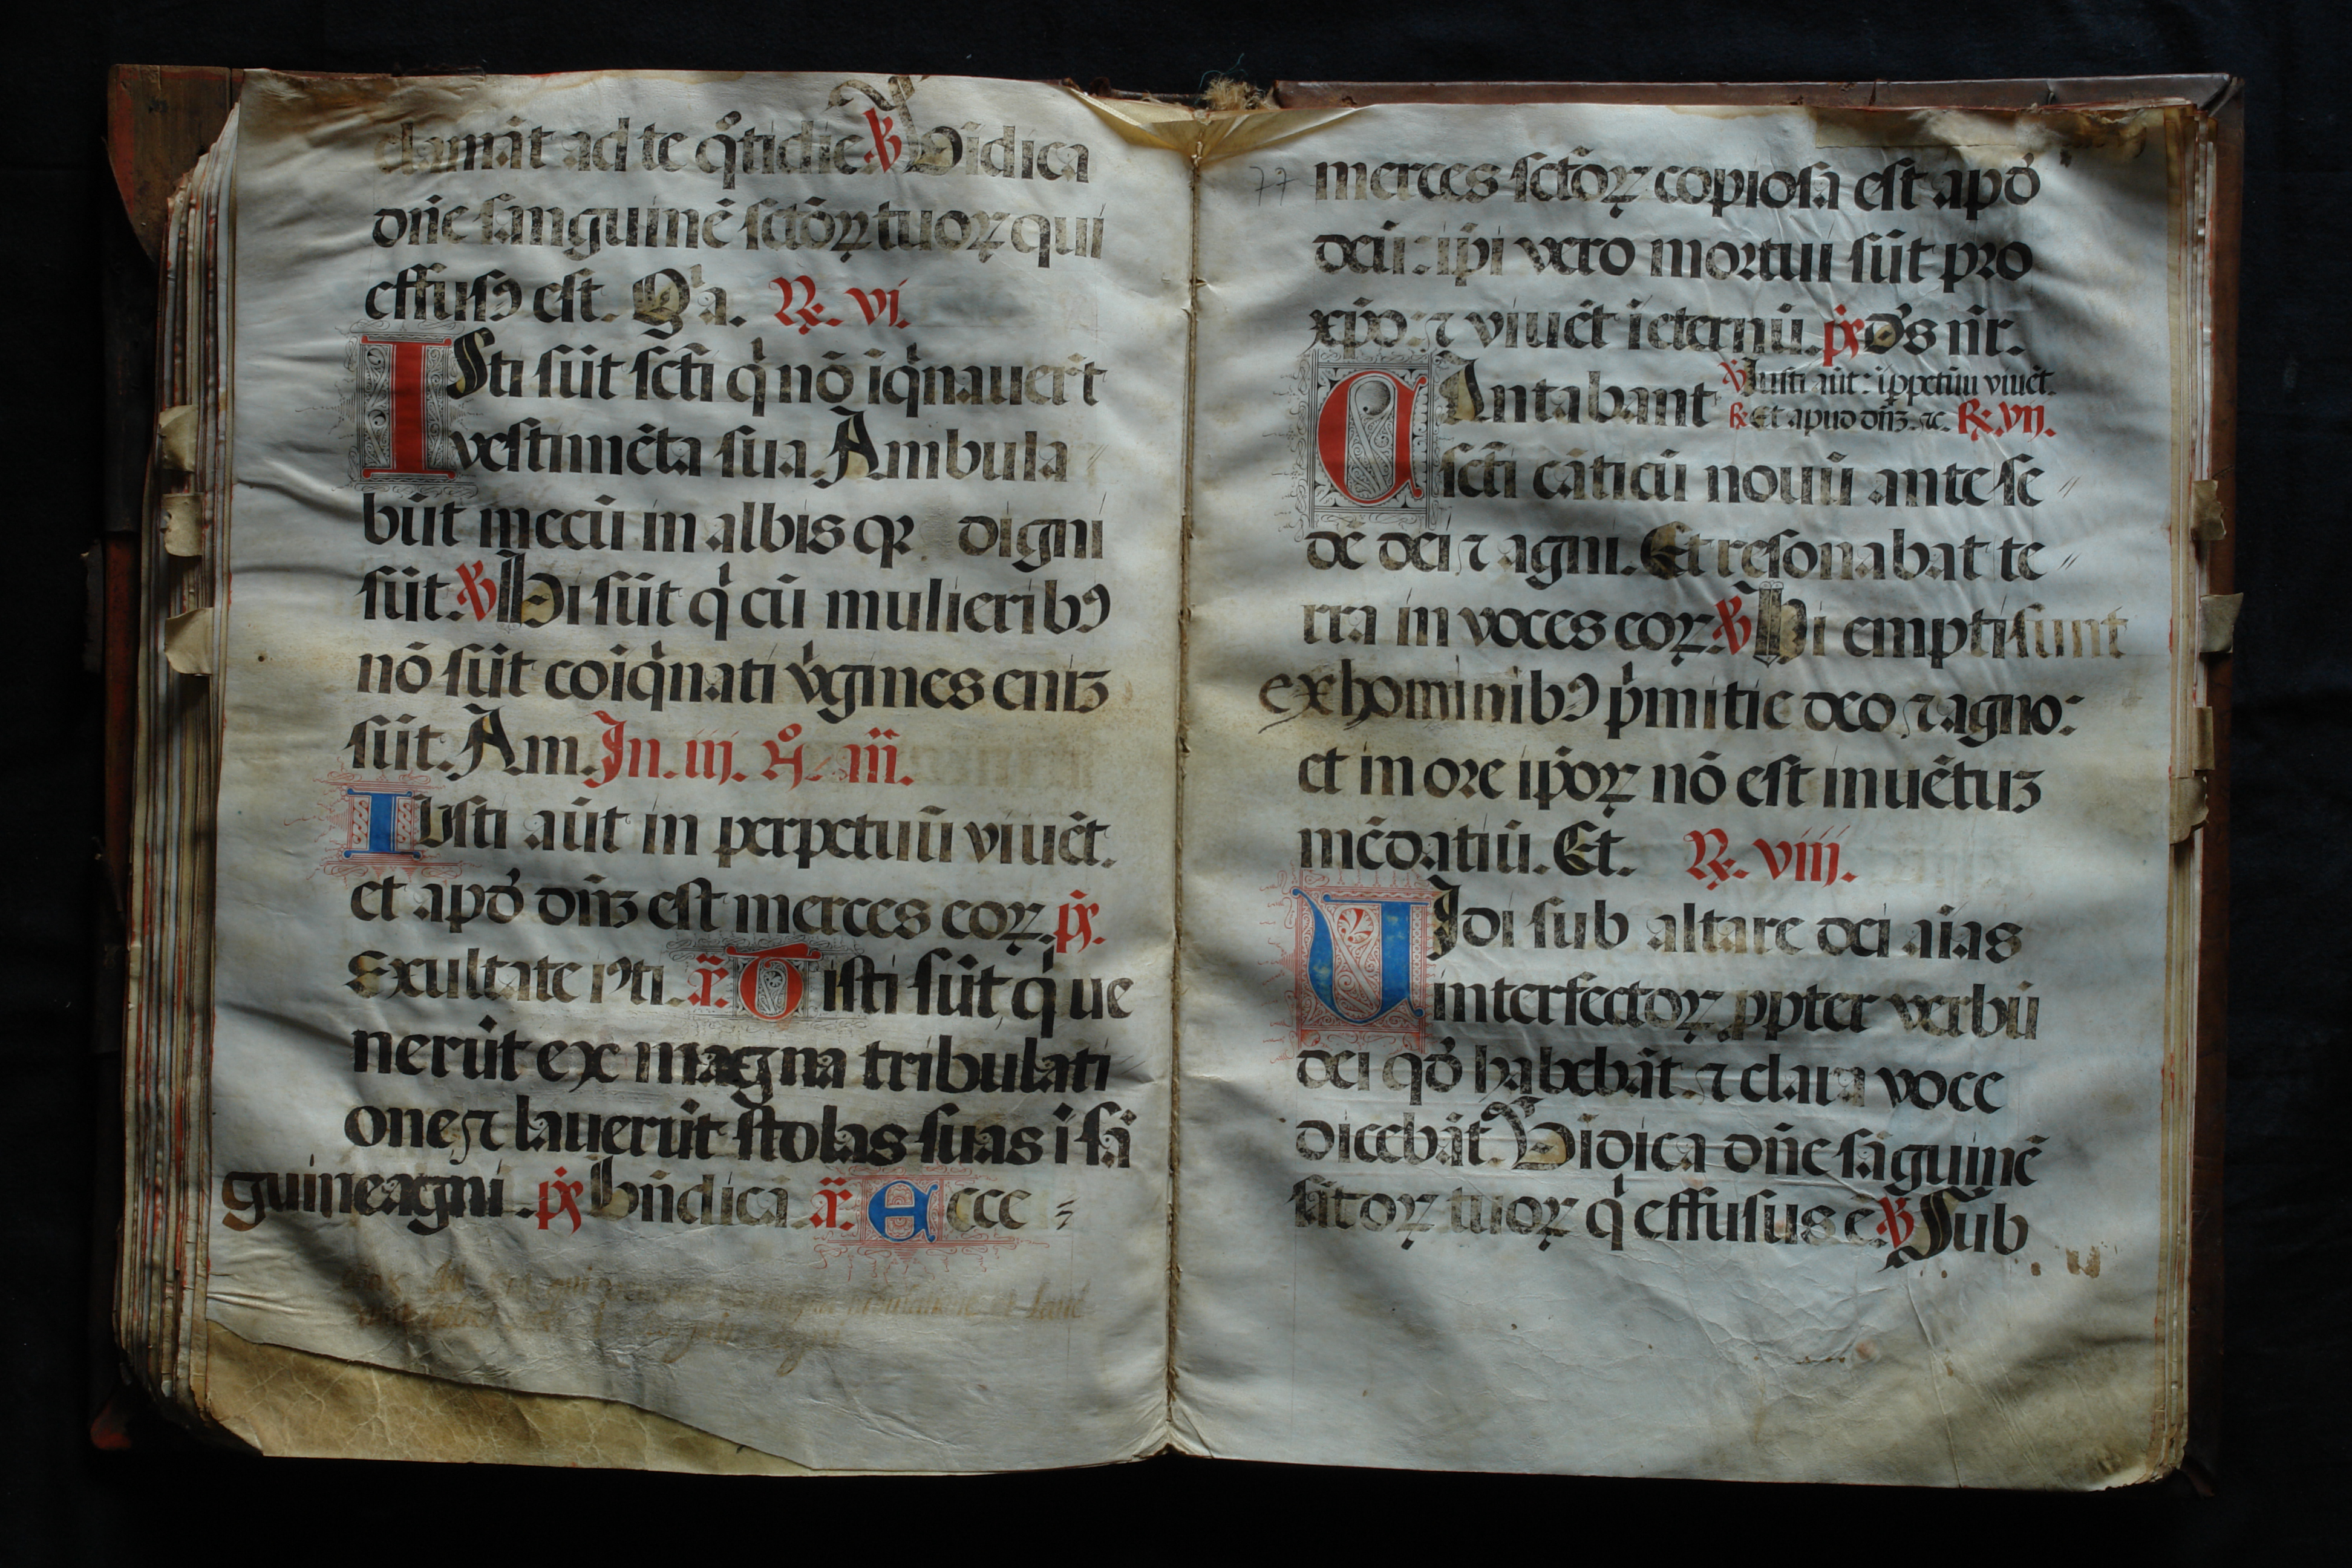 clamāt ad te q̊tidie ℣ Vidica
dñe sanguinē sctōꝝ tuoꝝ qui
effusꝰ est. Qͥa. ℞. vi.
ISti sūt scti̅ qͥ nō iqͥnauerūt
vestimēta sua. Ambula
būt mecū in albis qꝛ digni
sūt. ℣ Hi sūt qͥ cū mulieribꝰ
nō sūt coiqͥnati v̾gines eniꝫ
sūt. Am. Jn. iij. n̊. añ.
IUsti aūt in perpetuū viuēt.
et apđ dn̅ꝫ est merces eoꝝ. p̄s.
Exultate iꝰti. añ. Isti sūt qͥ ue
nerūt ex magna tribulati
one ⁊ lauerūt stolas suas i sā
guine agni. p̄s Bn̄dicā añ. Ecce =
77 merces sctōꝝ copiosa est apđ
deū: ip̄i vero mortui sūt pro
xp̄o: ⁊ viuēt i eternū. p̄s Ds̄ nr̄.
CAntabant ℣ Justi aūt: i ꝑpetūu viuēt.
℞ Et apud dn̄ꝫ. ⁊c. ℞. vij.
scti̅ cāticū nouū ante se〃
dē dei ⁊ agni. Et resonabat te〃
rra in voces eoꝝ. ℣ Hi empti sunt
ex hominibꝰ pͥmitie deo ⁊ agno:
et in ore ip̄oꝝ nō est inuētuꝫ
mēdatiū. Et. ℞. viii.
UJdi sub altare dei aīas
interfectoꝝ ꝓpter verbū
dei qđ habebāt. ⁊ clara voce
dicebāt. Vidica dñe sāguinē
sātoꝝ tuoꝝ qͥ effusus ē ℣ Sub